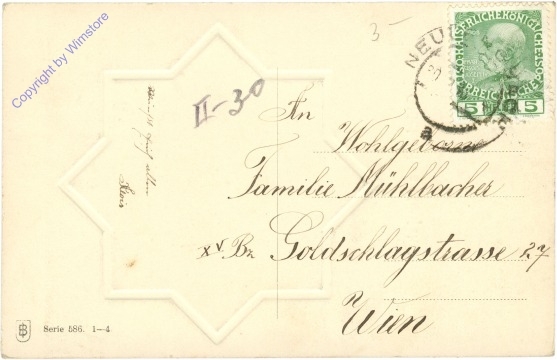 Copyright by Wimstore
3-
NEU
KAISERLICHE KÖNIGLICHE
5 5
a
II-30
Alois
An
Wohlgeborne
Familie Mühlbacher
XV Bz Goldschlagstrasse 27
Wien
Serie 586. 1-4